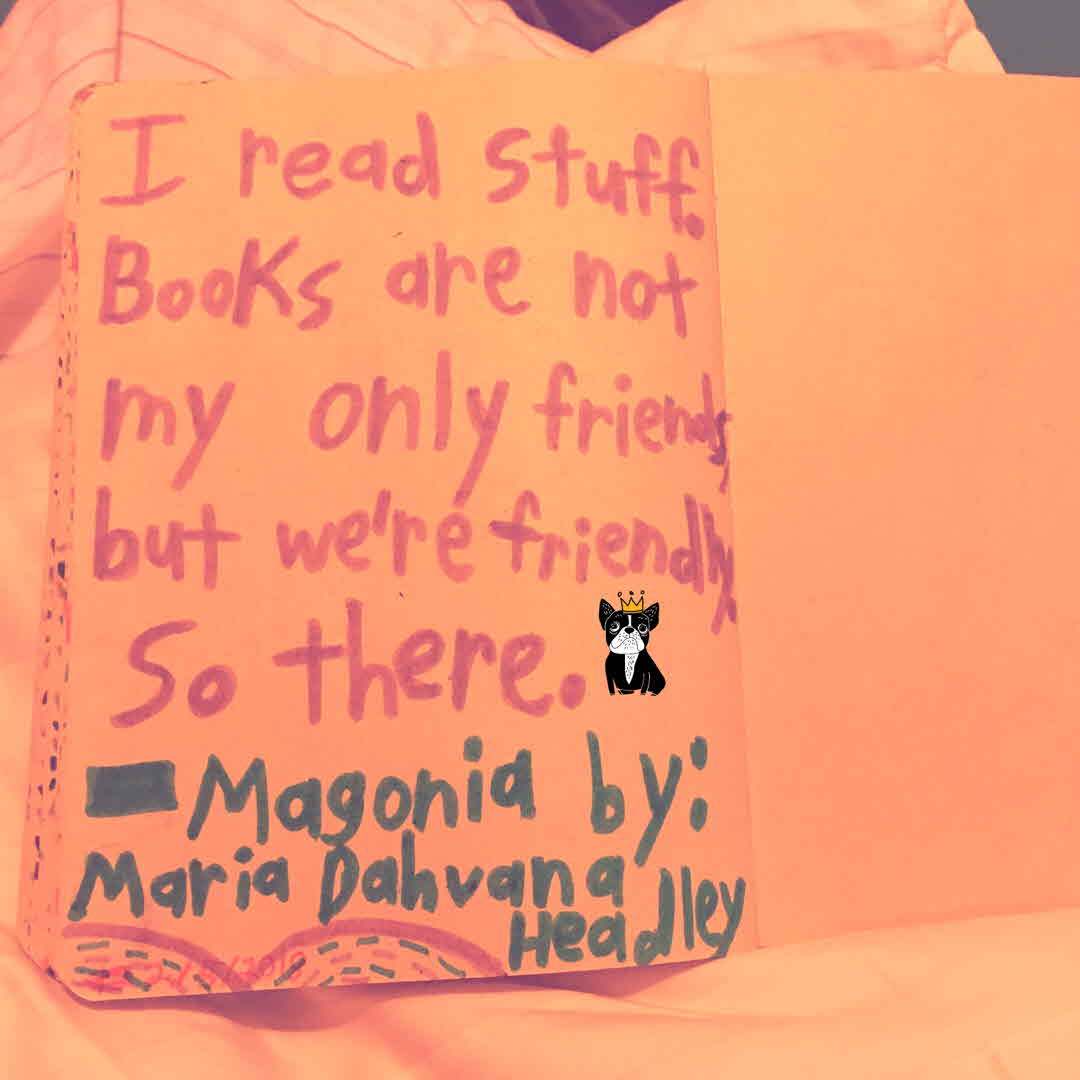 I read stuff.
Books are not
my only friends,
but we're friendly.
So there.
Magonia by:
Maria Dahvana
Headley